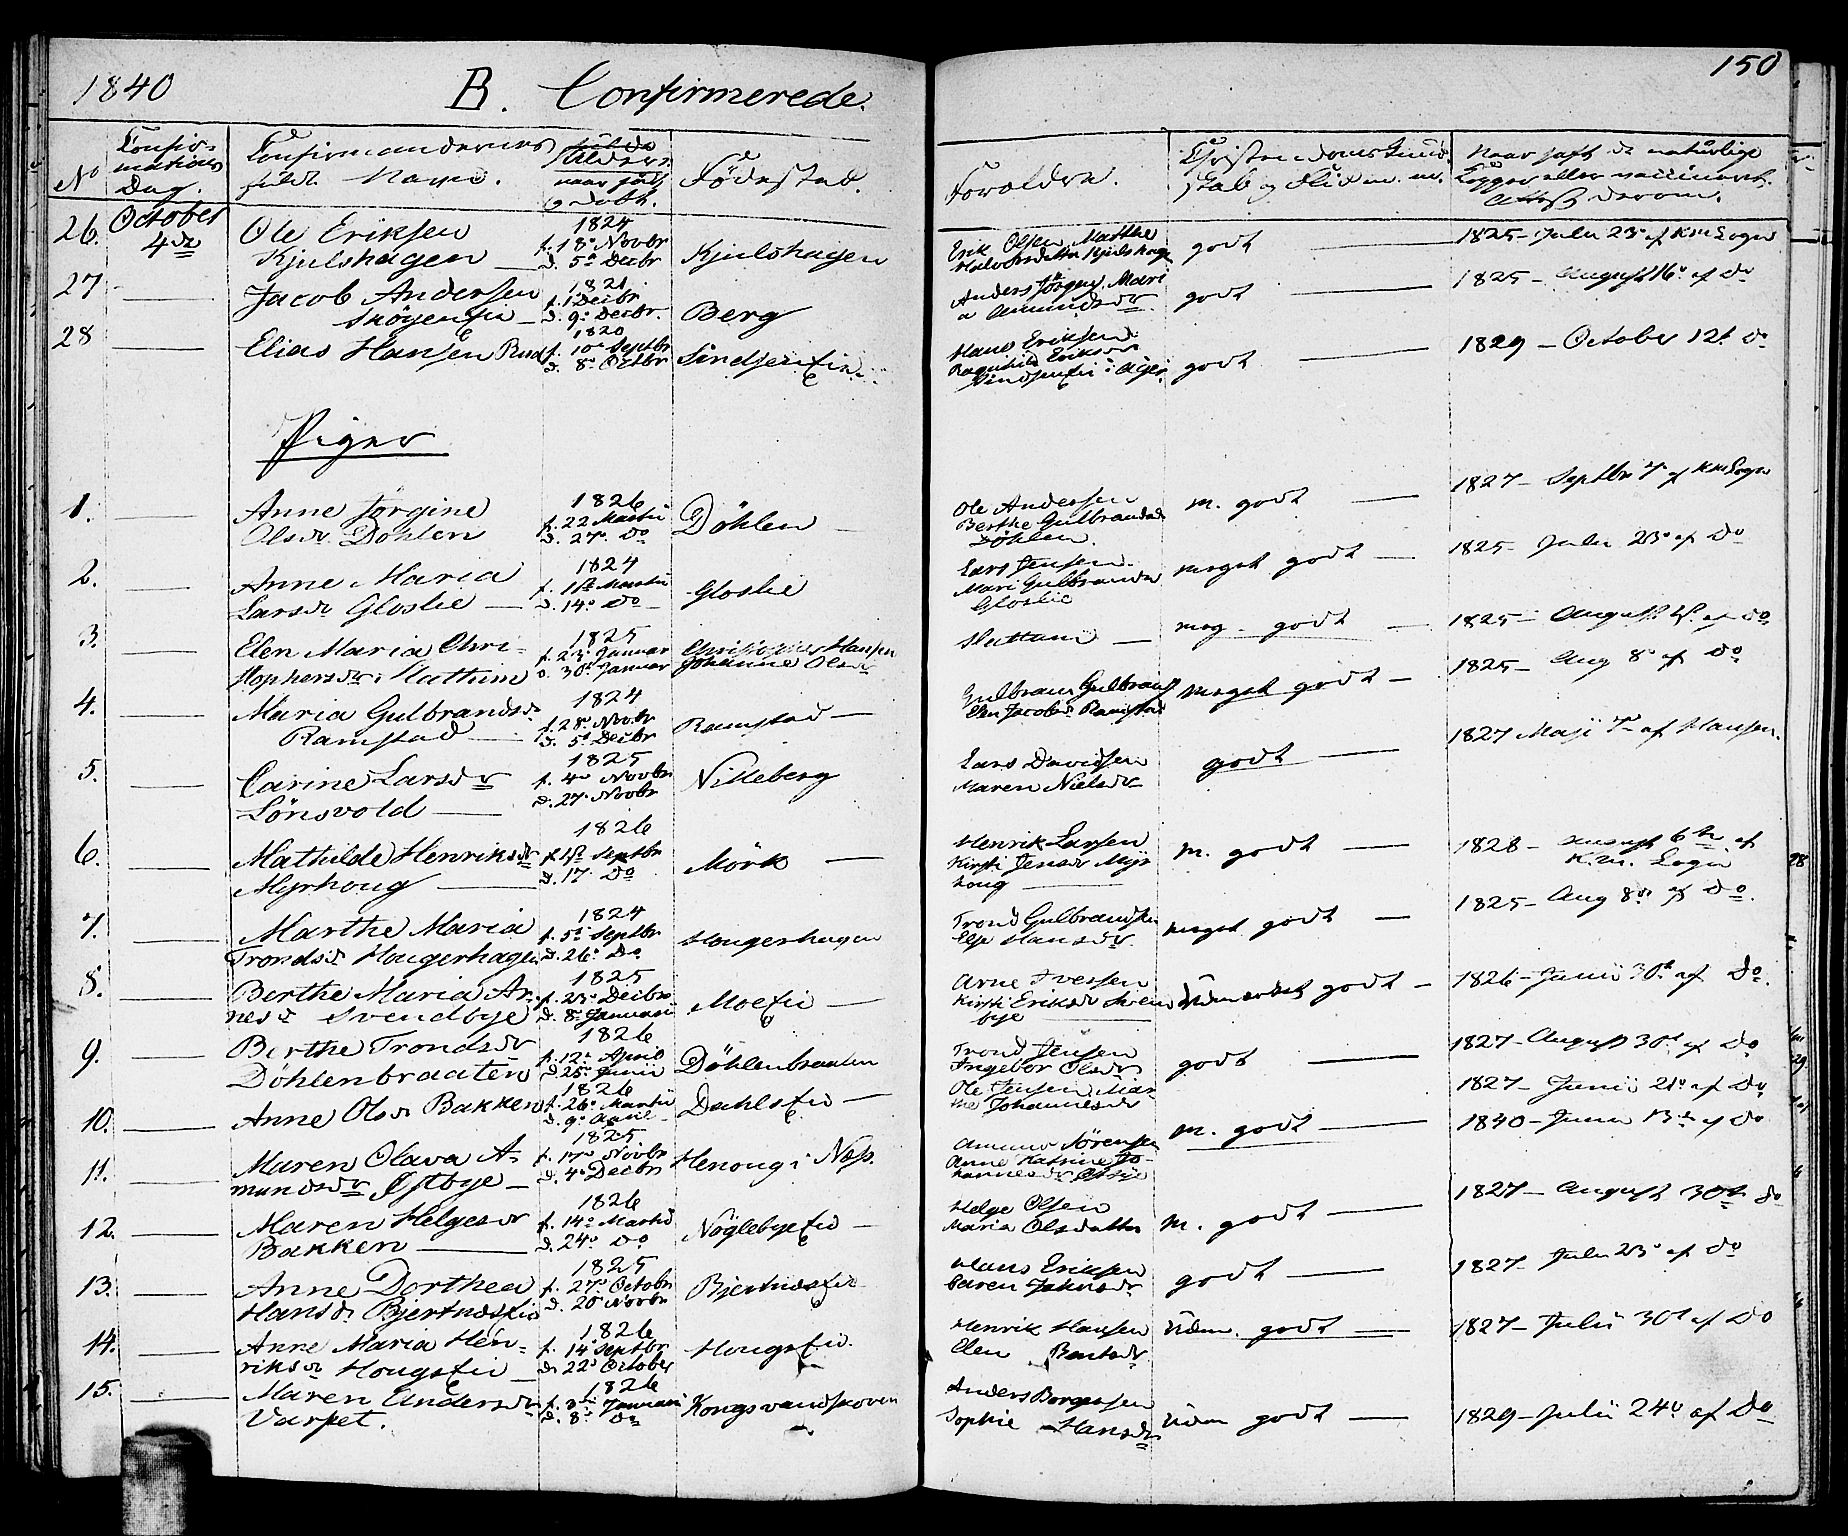 1840 B. Confirmerede. 150
No
Confir-
mations
Dag.
Confirmandernes
fulde Navne.
Alder
naar född
og döbt.
Födested.
Forældre.
Christendoms Kund-
skab og Flid m. m.
Naar havt de naturlige
Kopper eller vaccineret.
Attest derom.
26. October 4de
Ole Eriksen
Kjulshagen
1824
f. 18de Novbr
d. 5te Decbr
Kjulshagen
Erik Olsen Marthe
Halvorsdatter Kjulshage
godt
1825 - Julii 23de af Km Sogn
27
Jacob Andersen
Skögenfie
1821
f. 1 Decbr
d. 9de Decbr.
Berg
Anders Jörgens. Mari
a Amundsdr.
godt
1825 - August 16de af do
28
Elias Hansen Rud
1820
f. 10de Septbr
d. 8de Octbr
Hans Eriksen
Ragnhild Eriksdr
godt
1829 - October 12t do
Piger
1.
Anne Jörgine
Olsdr. Döhlen
1826
f. 22 Martii
d. 27de do
Döhlen
Ole Andersen
Berthe Gulbrandsd
Döhlen.
m. godt
1827 - Septbr 7de af Km Sogn
2.
Anne Maria
Larsdr Gloslie
1824
f. 1ste Martii
d. 14de do
Gloslie
Lars Jensen
Mari Gulbrandsd
Gloslie
meget godt
1825 - Julii 23de af do
3.
Elen Maria Chri-
stophersdr. Hattum
1825
f. 23de Januar
d. 30te Januar
Christopher Hansen
Johanne Olsdr
Hattum
meg. godt
1825 - August af do
4.
Maria Gulbrandsdr
Ramstad
1824
f. 28de Novbr
d. 5te Decbr
Ramstad
Gulbran Gulbrands
Elen Jacobsd Ramstad
meget godt
1825 - Aug 8de af do
5.
Carine Larsdr
Lönsvold
1825
f. 4de Novbr
d. 27de Novbr
Nilleberg
Lars Davidsen
Maren Nielsdr
godt
1827 Maji 7de af Hansen.
6.
Mathilde Henriksdr
Myrhoug
1826
f. 1ste Septbr
d. 17 do
Mörk
Henrik Larsen
Kirsti Jensdr Myr
houg
m. godt
1828 - August 6te af
K. m. Sogn
7.
Marthe Maria
Trondsd. Hougerhagen
1824
f. 5te Septbr
d. 26de do
Hougerhagen
Trond Gulbrandsen
Else Hansdr.
meget godt
1825 - Aug 8de af do.
8.
Berthe Maria Ar-
nesd Svendbye
1825
f. 23de Decbr
d. 8de Januarii
Moefie
Arne Iversen
Kirsti Eriksdr Svend
bye
Udmærket godt
1826 - Junii 30te af Do.
9.
Berthe Trondsdr
Döhlenbraaten
1826
f. 12te April
d. 25de Junii
Döhlenbraaten
Trond Jensen
Ingebor Olsdr
godt
1827 - August 30te af Do
10.
Anne Olsdr Bakken
1826
f. 26de Martii
d. 9de April
Dahlsfie
Ole Jensen Mar-
the Johannesdr
m. godt
1827 - Junii 21de af Do
11.
Maren Olava A-
mundsdr Östbye
1825
f. 17de Novbr
d. 4de Decbr
Henoug i Næs.
Amund Sörensen
Anne Katrine Jo-
hannesdr Östbye
1840 - Junii 13de af do
12.
Maren Helgesdr
Bakken
1826
f. 14de Martii
d. 24de do
Nöglebyefie
Helge Olsen
Maria Olsdatter
m. godt
1827 - August 30te do
13.
Anne Dorthea
Hansdr. Bjertnæsfie
1825
f. 27de Octobr
d. 20 Novbr
Bjertnæsfie
Hans Eriksen
Karen Johnsdr.
godt
1827 - Julii 23de af do
14.
Anne Maria Hen-
riksdr Hougsfie
1826
f. 14 Septbr
d. 22de October
Hougsfie.
Henrik Hansen
Elen Bentsdr.
Udm. godt
1827 - Julii 30te af Do
15.
Maren Andersdr
Varpet.
1826
f. 3die Januarii
d. 8de do
Kongsvandskoven
Anders Borgersen
Sophie Hansdr
Udm godt
1829 - Julii 24de af Do